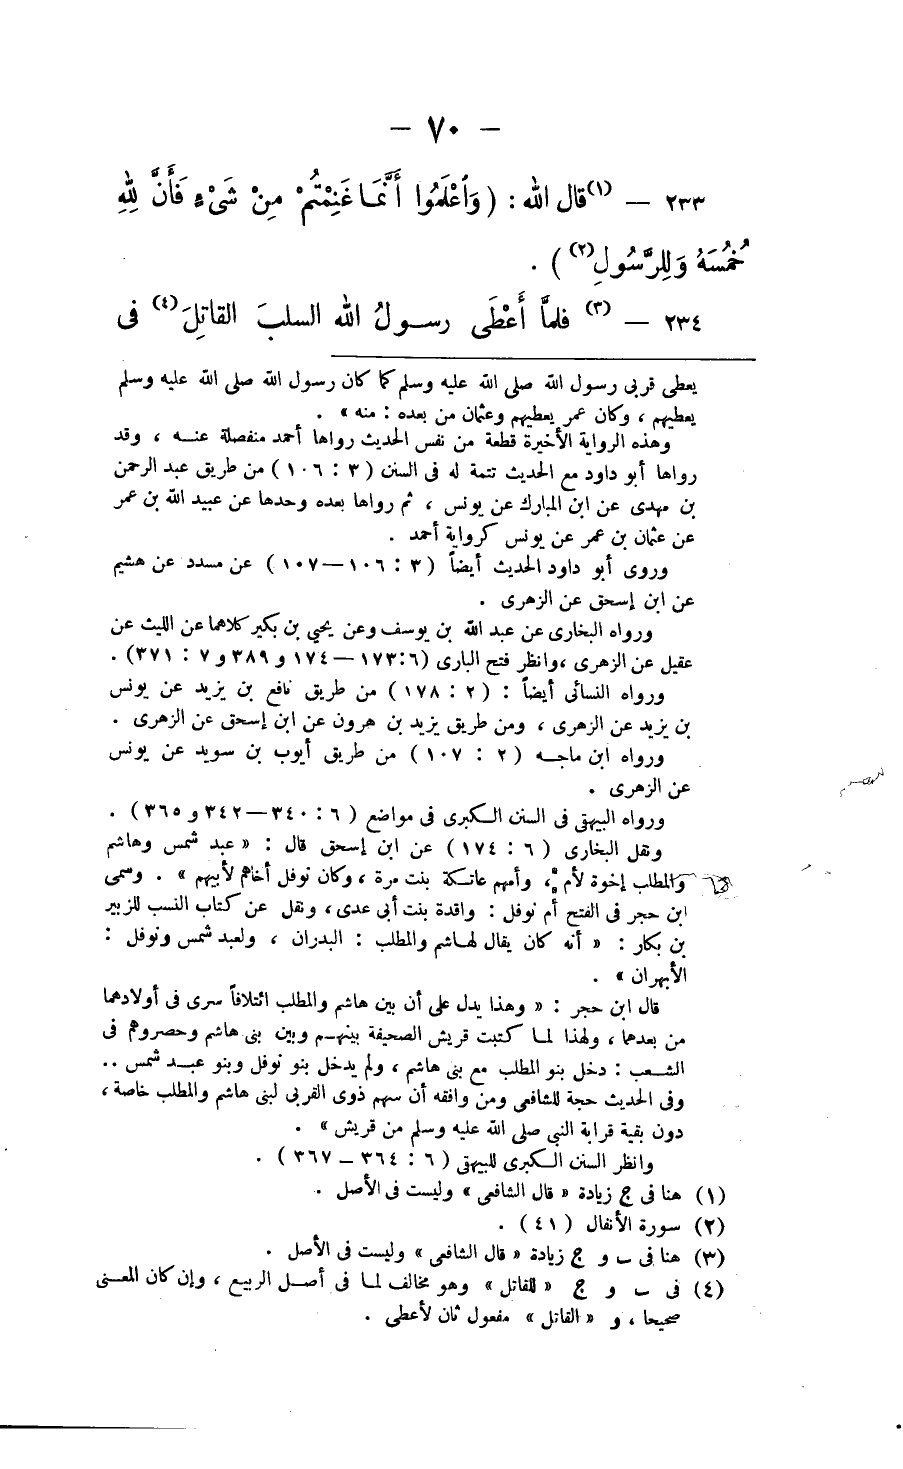 — ٧٠ —
٢٣٣ — (١) قال الله : ( وَاعْلَمُوا أَنَّمَا غَنِمْتُمْ مِنْ شَيْءٍ فَأَنَّ لِلهِ
خُمُسَهُ وَلِلرَّسُولِ (٢) ) .
٢٣٤ — (٣) فلمَّا أَعْطَى رسولُ الله السلبَ القاتِلَ (٤) فى
يعطى قربى رسول الله صلى الله عليه وسلم كما كان رسول الله صلى الله عليه وسلم
يعطيهم ، وكان عمر يعطيهم وعثمان من بعده : منه » .
وهذه الرواية الأخيرة قطعة من نفس الحديث رواها أحمد منفصلة عنه ، وقد
رواها أبو داود مع الحديث تتمة له فى السنن ( ٣ : ١٠٦ ) من طريق عبد الرحمن
بن مهدى عن ابن المبارك عن يونس ، ثم رواها بعده وحدها عن عبيد الله بن عمر
عن عثمان بن عمر عن يونس كرواية أحمد .
وروى أبو داود الحديث أيضاً ( ٣ : ١٠٦ — ١٠٧ ) عن مسدد عن هشيم
عن ابن إسحق عن الزهرى .
ورواه البخارى عن عبد الله بن يوسف وعن يحيي بن بكير كلاهما عن الليث عن
عقيل عن الزهرى ، وانظر فتح البارى (٦ : ١٧٣ — ١٧٤ و ٣٨٩ و ٧ : ٣٧١) .
ورواه النسائى أيضاً : ( ٢ : ١٧٨ ) من طريق نافع بن يزيد عن يونس
بن يزيد عن الزهرى ، ومن طريق يزيد بن هرون عن ابن إسحق عن الزهرى .
ورواه ابن ماجه ( ٢ : ١٠٧ ) من طريق أيوب بن سويد عن يونس
عن الزهرى .
ورواه البيهقى فى السنن الكبرى فى مواضع ( ٦ : ٣٤٠ — ٣٤٢ و ٣٦٥ ) .
ونقل البخارى ( ٦ : ١٧٤ ) عن ابن إسحق قال : « عبد شمس وهاشم
والمطلب إخوة لأم ، وأمهم عاتكة بنت مرة ، وكان نوفل أخاهم لأبيهم » . وسمى
ابن حجر فى الفتح أم نوفل : واقدة بنت أبى عدى ، ونقل عن كتاب النسب للزبير
بن بكار : « أنه كان يقال لهاشم والمطلب : البدران ، ولعبد شمس ونوفل :
الأبهران » .
قال ابن حجر : « وهذا يدل على أن بين هاشم والمطلب ائتلافاً سرى فى أولادهما
من بعدهما ، ولهذا لما كتبت قريش الصحيفة بينهم وبين بنى هاشم وحصروهم فى
الشعب : دخل بنو المطلب مع بنى هاشم ، ولم يدخل بنو نوفل وبنو عبد شمس ..
وفى الحديث حجة للشافعى ومن وافقه أن سهم ذوى القربى لبنى هاشم والمطلب خاصة ،
دون بقية قرابة النبى صلى الله عليه وسلم من قريش » .
وانظر السنن الكبرى للبيهقى ( ٦ : ٣٦٤ — ٣٦٧ ) .
(١) هنا فى ج زيادة « قال الشافعى » وليست فى الأصل .
(٢) سورة الأنفال ( ٤١ ) .
(٣) هنا فى ب و ج زيادة « قال الشافعى » وليست فى الأصل .
(٤) فى ب و ج « للقاتل » وهو مخالف لما فى أصل الربيع ، وإن كان المعنى
صحيحا ، و « القاتل » مفعول ثان لأعطى .